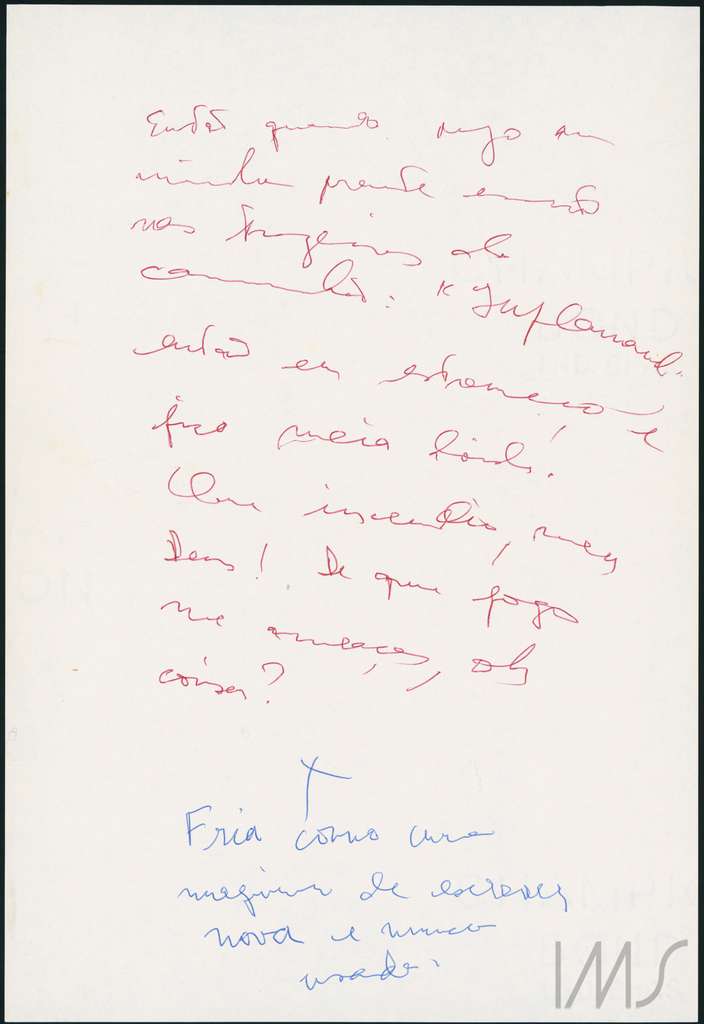 Então quando vejo em
minha frente escrito
nas traseiras de
caminhão: "Inflamável"
então eu estremeço e
fico meia tonta.
Que incêndio, meu
Deus! De que fogo
me ameaças, oh
coisa?
Fria como uma
maquina de escrever
nova e nunca
usada.
IMS